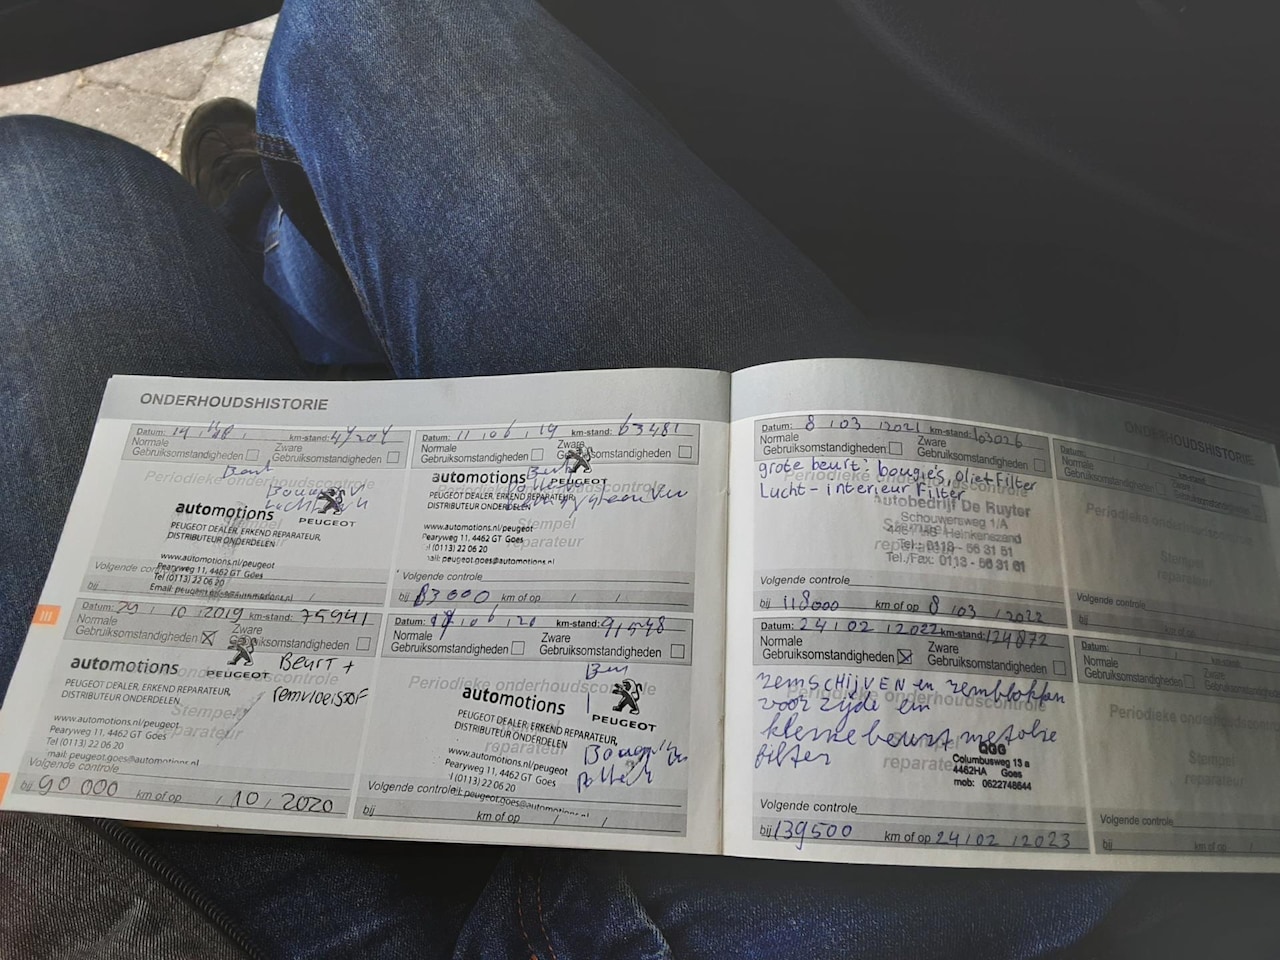 ONDERHOUDSHISTORIE
Datum: 14
km-stand:
Normale
Gebruiksomstandigheden
Zware
Gebruiksomstandigheden
Periodieke onderhoudscontrole
automotions
PEUGEOT
PEUGEOT DEALER, ERKEND REPARATEUR,
DISTRIBUTEUR ONDERDELEN
Stempel
reparateur
www.automotions.nl/peugeot
Pearyweg 11, 4462 GT Goes
Tel (0113) 22 06 20
Email: peugeot.goes@automotions.nl
Volgende controle
bij km of op / /
Datum: 11 06 19 km-stand: 63481
Normale
Gebruiksomstandigheden
Zware
Gebruiksomstandigheden
Periodieke onderhoudscontrole
automotions
PEUGEOT
PEUGEOT DEALER, ERKEND REPARATEUR,
DISTRIBUTEUR ONDERDELEN
Stempel
reparateur
www.automotions.nl/peugeot
Pearyweg 11, 4462 GT Goes
(0113) 22 06 20
mail: peugeot.goes@automotions.nl
Volgende controle
bij 83000 km of op / /
Datum: 29 / 10 / 2019 km-stand: 75941
Normale
Gebruiksomstandigheden
Zware
Gebruiksomstandigheden
automotions
PEUGEOT
Beurt +
remvloeistof
PEUGEOT DEALER, ERKEND REPARATEUR,
DISTRIBUTEUR ONDERDELEN
Stempel
reparateur
www.automotions.nl/peugeot
Pearyweg 11, 4462 GT Goes
Tel (0113) 22 06 20
mail: peugeot.goes@automotions.nl
Volgende controle
bij 90 000 km of op / 10 / 2020
Datum: 6 20 km-stand: 91548
Normale
Gebruiksomstandigheden
Zware
Gebruiksomstandigheden
Periodieke onderhoudscontrole
automotions
PEUGEOT
PEUGEOT DEALER, ERKEND REPARATEUR,
DISTRIBUTEUR ONDERDELEN
Stempel
reparateur
www.automotions.nl/peugeot
Pearyweg 11, 4462 GT Goes
(0113) 22 06 20
peugeot.goes@automotions.nl
Volgende controle
bij km of op / /
Datum: 8 / 03 / 2021 km-stand: 103026
Normale
Gebruiksomstandigheden
Zware
Gebruiksomstandigheden
grote beurt: bougie's, olie filter
Lucht - interieur Filter
Periodieke onderhoudscontrole
Autobedrijf De Ruyter
Schouwersweg 1/A
Heinkenszand
Tel.: 0113 - 56 31 51
Tel./Fax: 0113 - 56 31 61
Stempel
reparateur
Volgende controle
bij 118000 km of op 8 / 03 / 2022
Datum: 24 / 02 / 2022 km-stand: 124872
Normale
Gebruiksomstandigheden
Zware
Gebruiksomstandigheden
remSCHIJVEN en remblokken
voor zijde en
kleine beurt met olie
filter
Periodieke onderhoudscontrole
Stempel
reparateur
QGG
Columbusweg 13 a
4462HA Goes
mob: 0622748644
Volgende controle
bij 139500 km of op 24 / 02 / 2023
ONDERHOUDSHISTORIE
Datum:
km-stand:
Normale
Gebruiksomstandigheden
Periodieke
Stempel
reparateur
Volgende controle
bij km of op
Datum:
km-stand
Normale
Gebruiksomstandigheden
Zware
Gebruiksomstandigheden
Periodieke
Stempel
reparateur
Volgende controle
bij km of op